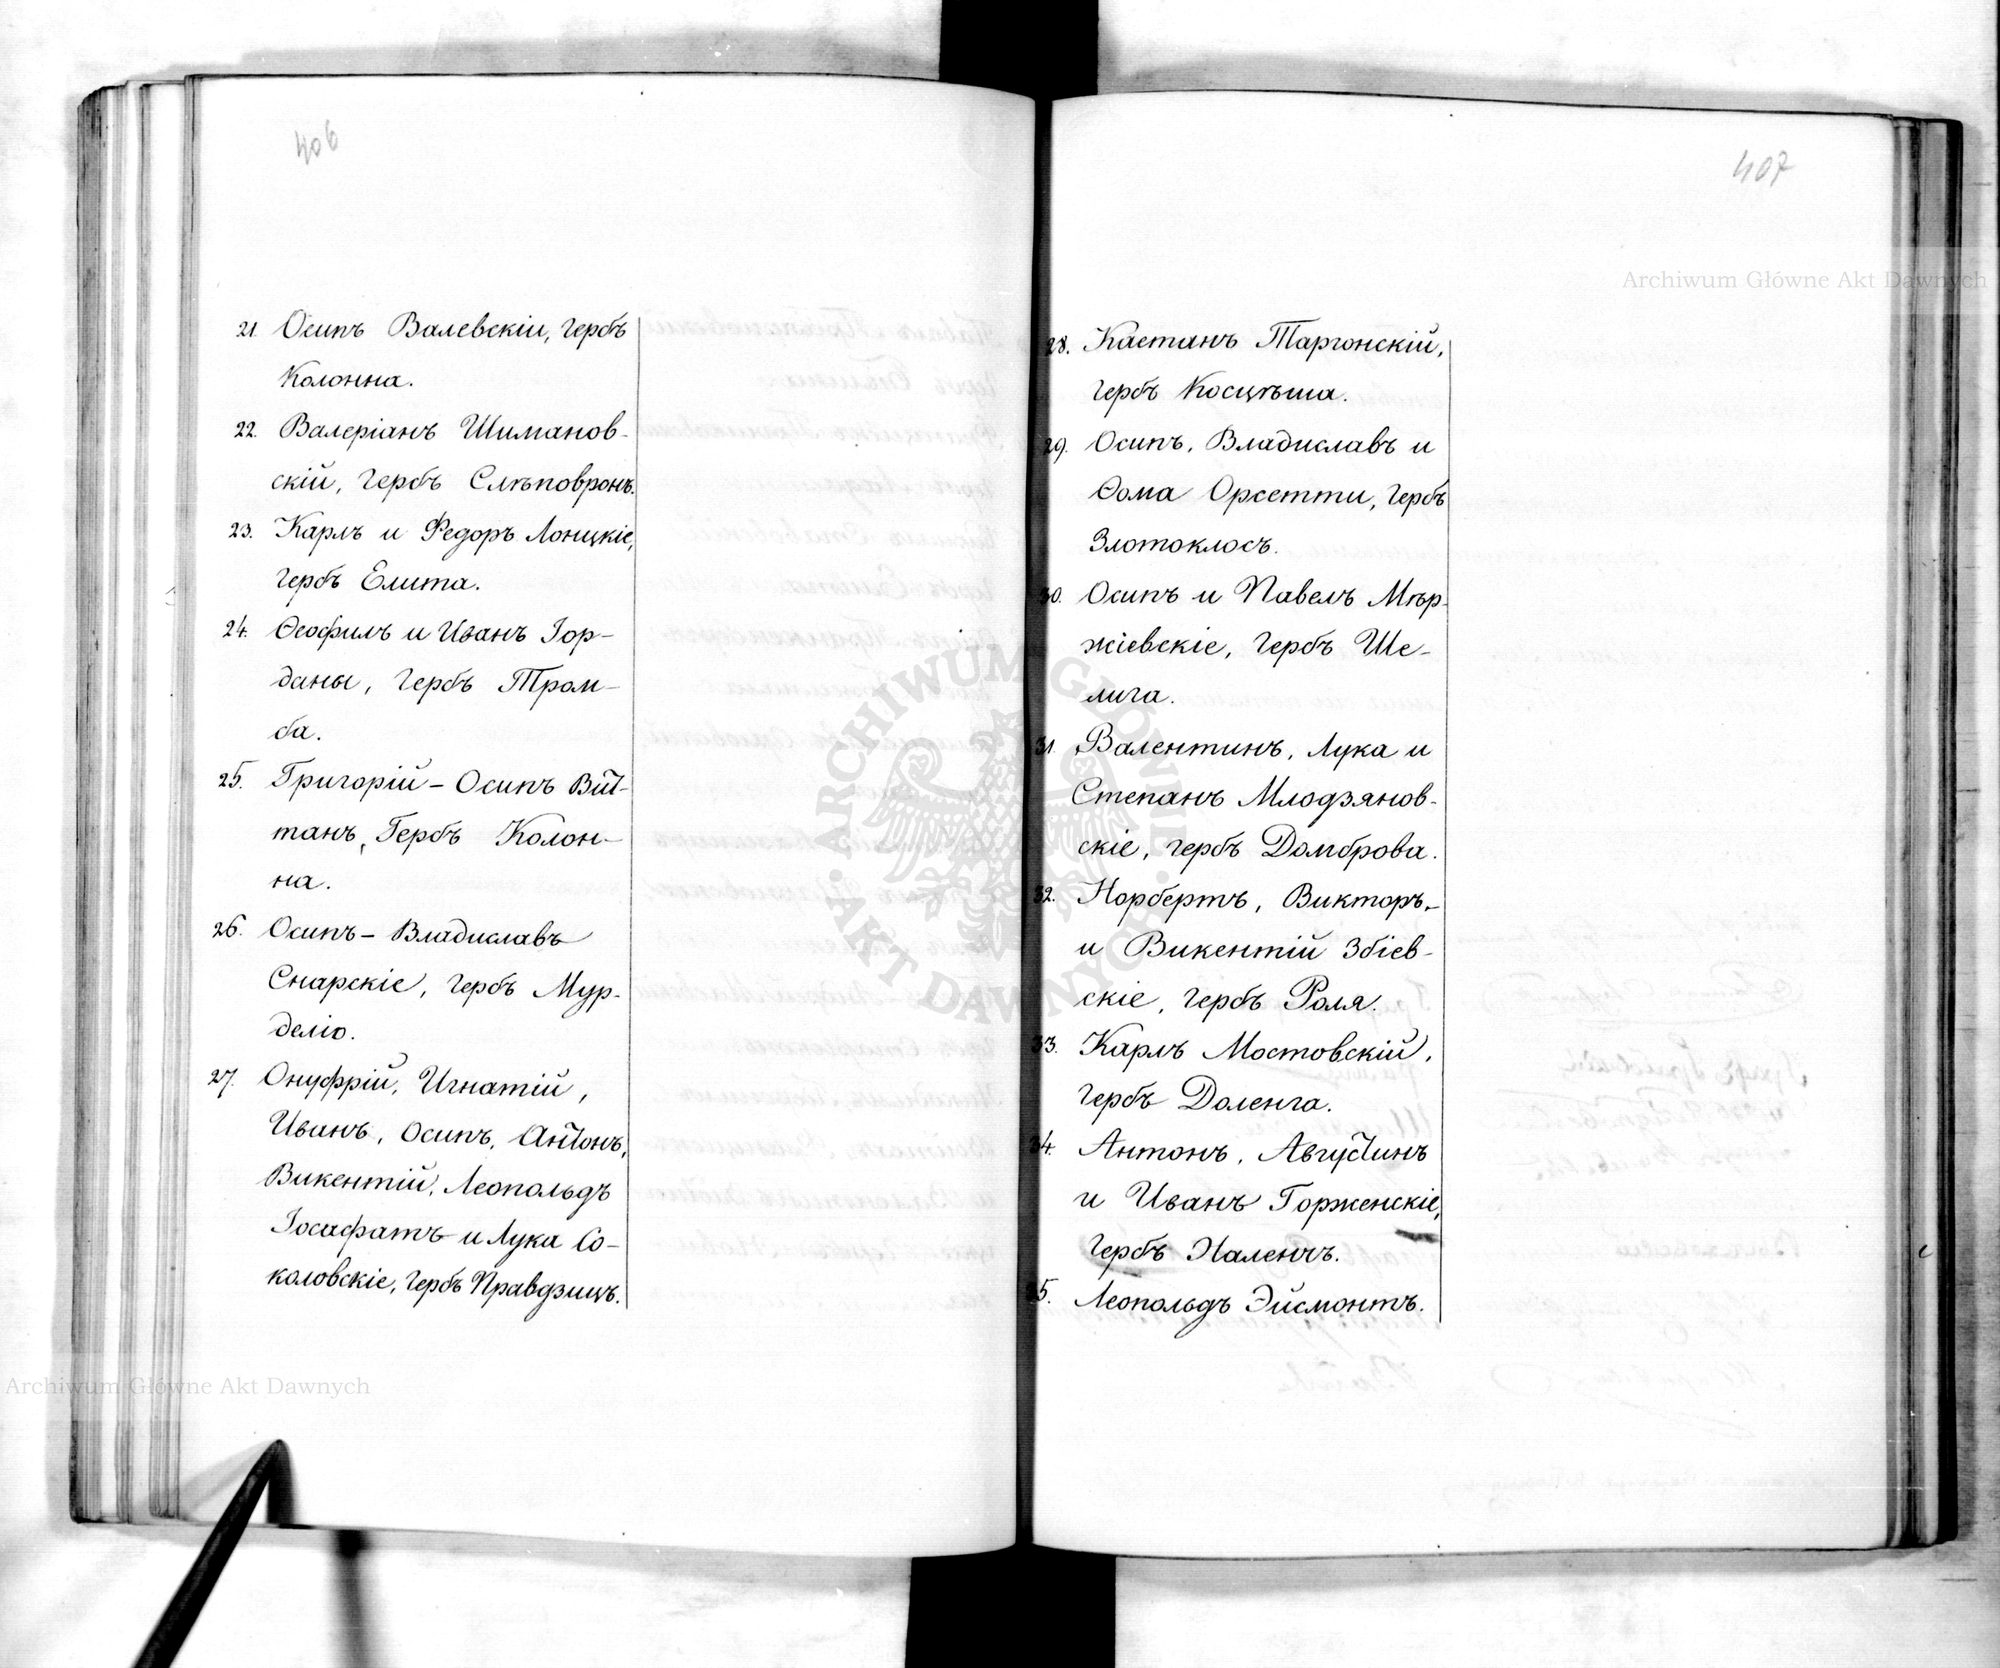 406
21. Осипъ Валевскій, гербъ
Колонна.
22. Валеріанъ Шиманов-
скій, гербъ Слѣповронъ.
23. Карлъ и Федоръ Лонцкіе,
гербъ Елита.
24. Ѳеофилъ и Иванъ Іор-
даны, гербъ Тром-
ба.
25. Григорій - Осипъ Вит-
танъ, Гербъ Колон-
на.
26. Осипъ - Владиславъ
Снарскіе, гербъ Мур-
деліо.
27. Онуфрій, Игнатій,
Иванъ, Осипъ, Антонъ,
Викентій, Леопольдъ
Іосафатъ и Лука Со-
коловскіе, гербъ Правдзицъ.
407
28. Каетанъ Таргонскій,
гербъ Косцѣша.
29. Осипъ, Владиславъ и
Ѳома Орсетти, гербъ
Злотоклосъ.
30. Осипъ и Павелъ Мѣр-
жіевскіе, гербъ Ше-
лига.
31. Валентинъ, Лука и
Степанъ Млодзянов-
скіе, гербъ Домброва.
32. Норбертъ, Викторъ,
и Викентій Збіев-
скіе, гербъ Роля.
33. Карлъ Мостовскій,
гербъ Доленга.
34. Антонъ, Августинъ
и Иванъ Горженскіе,
гербъ Наленчъ.
35. Леопольдъ Эйсмонтъ.
Archiwum Główne Akt Dawnych
ARCHIWUM GŁÓWNE AKT DAWNYCH
Archiwum Główne Akt Dawnych